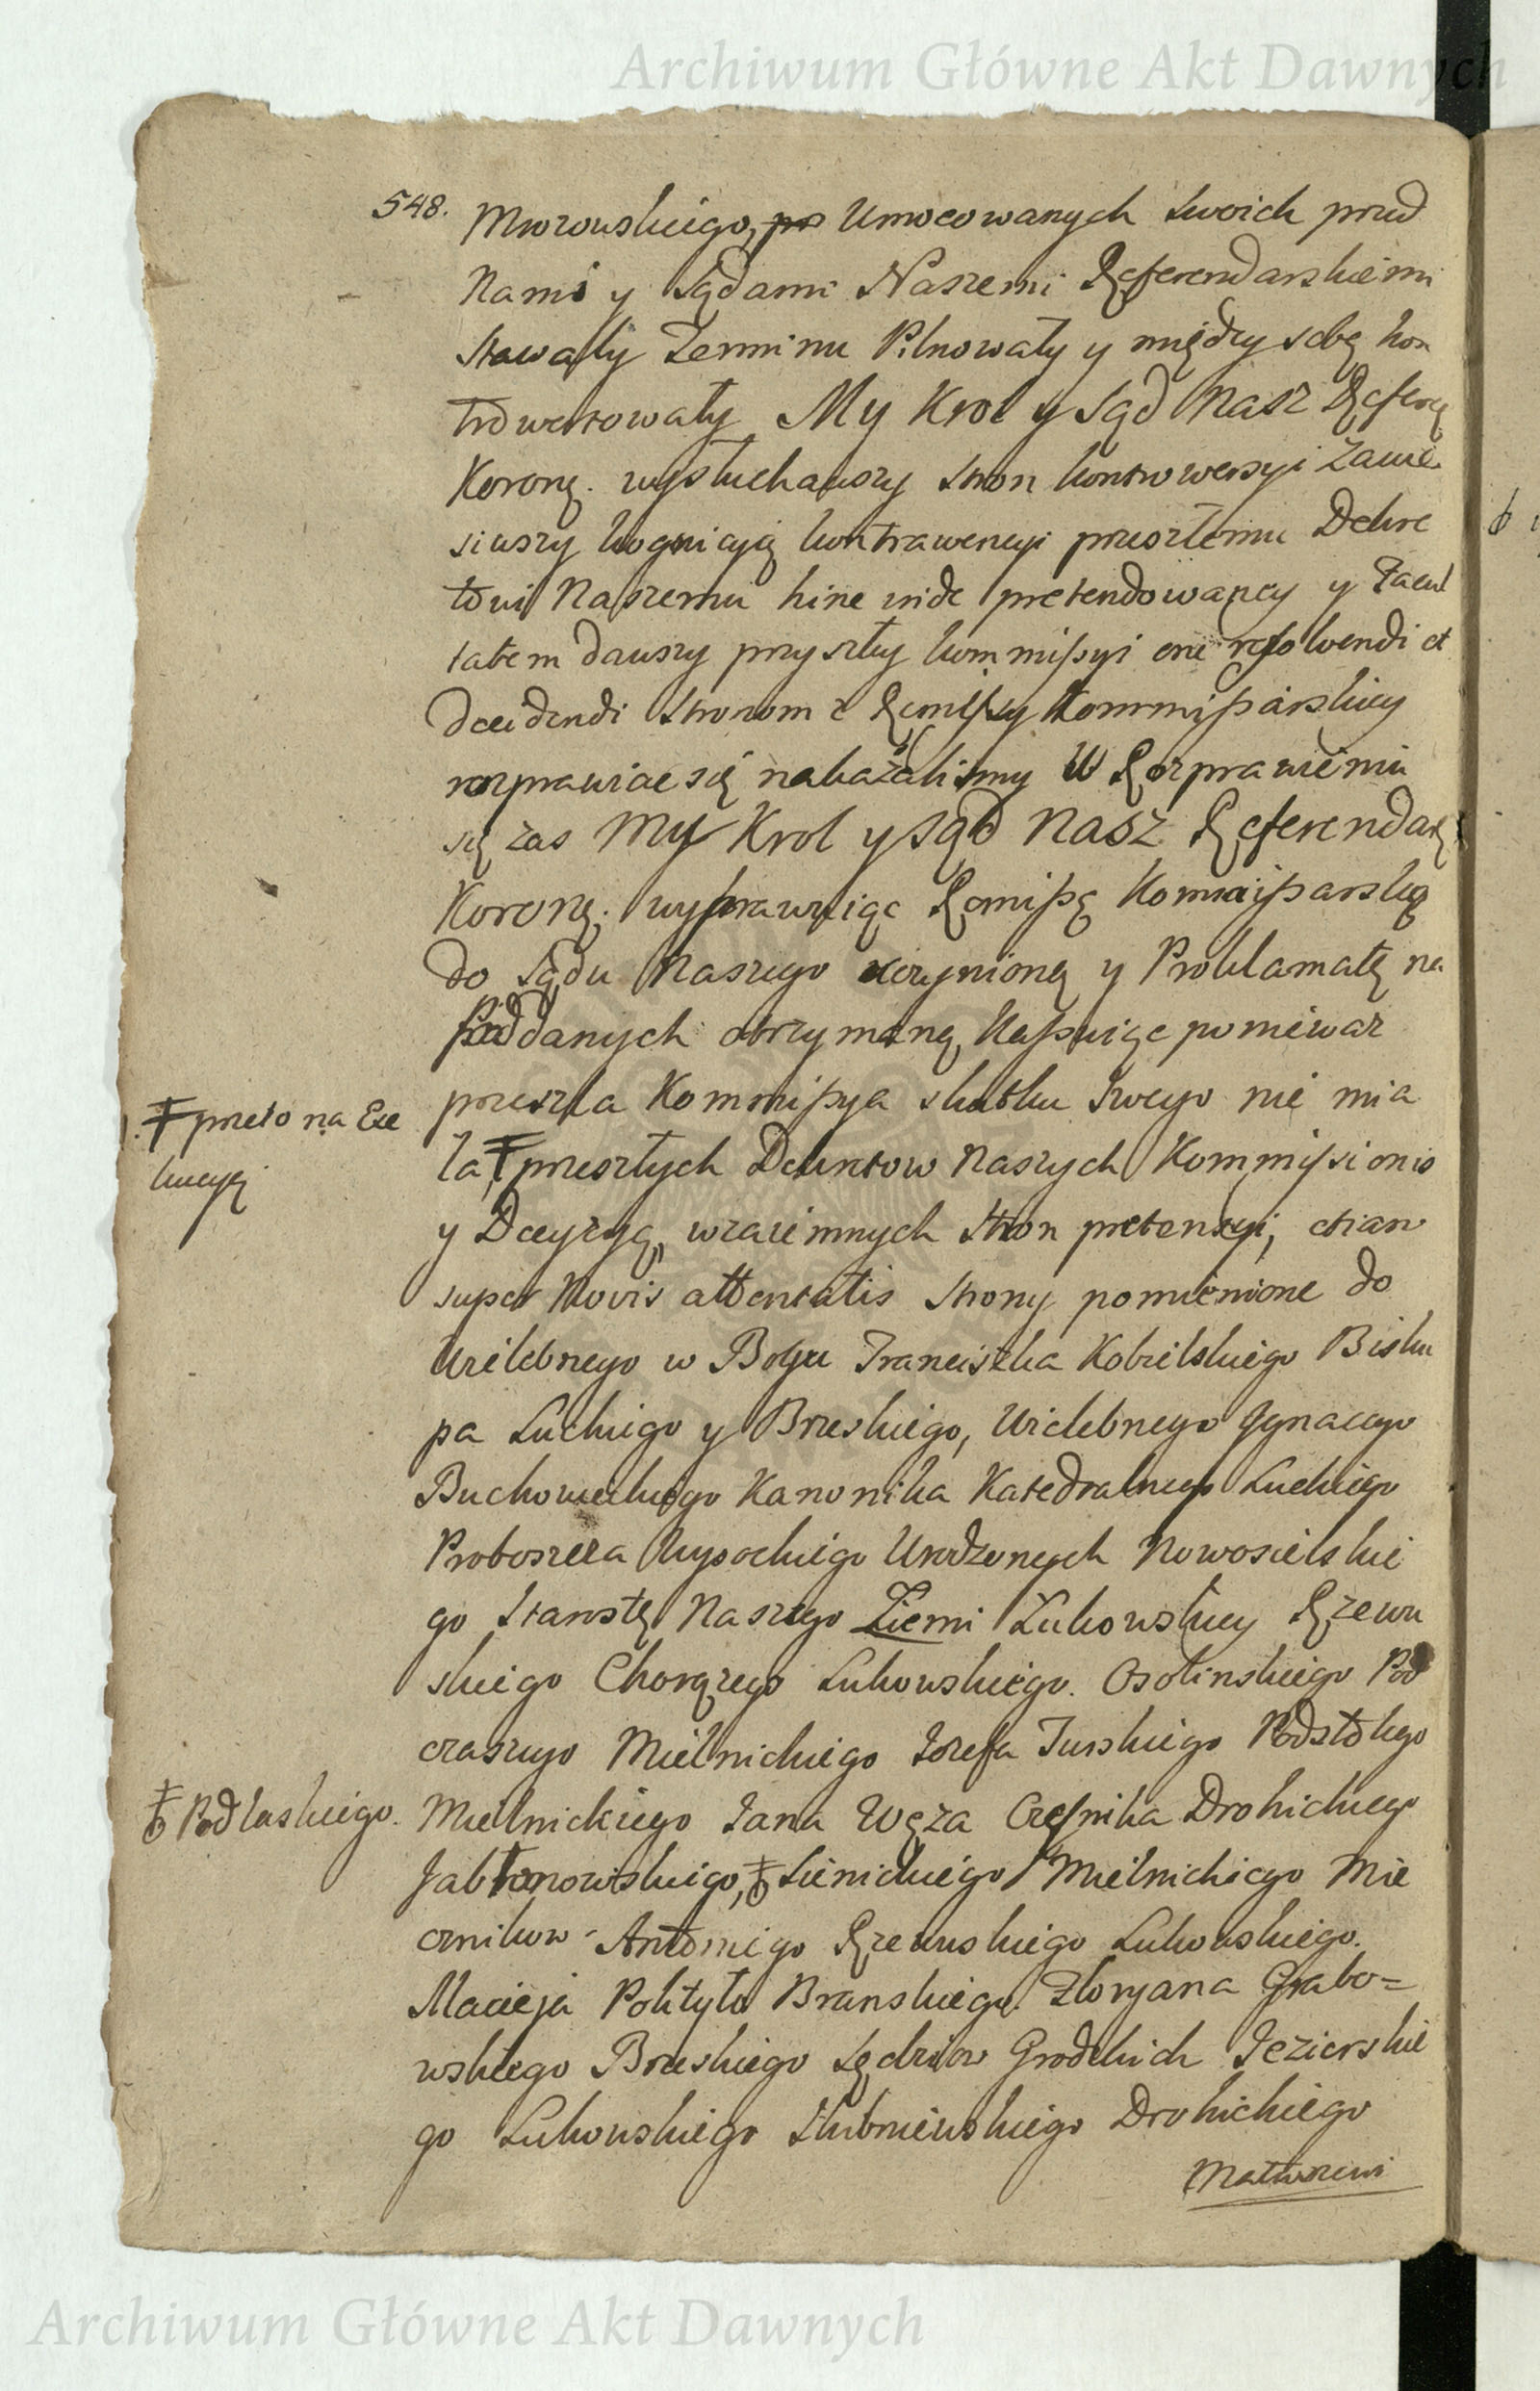 Archiwum Główne Akt Dawnych
548. Mrozowskiego, Umocowanych Swoich przed
Nami y Sądami Naszemi Referendarskiemi
Stawały Terminu Pilnowały y między sobą kon
trowertowały My Krol y Sąd Nasz Referę
Koronę. wysłuchawszy Stron kontrowersyi zawie
siwszy kognicyą kontrawencyi przeszłemu Dekre
towi Naszemu hinc inde pretendowaney y Facul
tatem dawszy przyszłey kommissyi one resolvendi et
decidendi Stronom z Remissy Kommissarskiey
rozprawiac się nakazalismy W Rozprawieniu
się zas My Krol y Sąd Nasz Referendarę
Koronę. wyprawuiąc Remissę Kommissarską
do Sądu Naszego uczynioną y Proklamatę na
Poddanych otrzymaną, Kassuiąc poniewaz
przeszła Kommissya skutku Swego nie mia
ła, Ŧ przeszłych Dekretow Naszych Kommissionis
Ŧ przeto na Exe
kucyą
y Decyzyą, wzaiemnych Stron pretensyi, etiam
super Novis attentatis Strony pomienione do
Wielebnego w Bogu Franciszka Kobielskiego Bisku
pa Łuckiego y Brzeskiego, Wielebnego Ignacego
Buchowieckiego Kanonika Katedralnego Łuckiego
Proboszcza Wysockiego Urodzonych Nowosielskie
go Starostę Naszego Ziemi Łukowskiey Rzewu
skiego Chorązego Łukowskiego. Osolinskiego Pod
czaszego Mielnickiego Jozefa Turskiego Podstolego
Mielnickiego Jana Węza Czesnika Drohickiego
Podlaskiego.
Jabłonowskiego, Sienickiego Mielnickiego Mie
cznikow Antoniego Rzewuskiego Łukowskiego.
Macieja Polityło Branskiego. Floryana Grabo=
wskiego Brzeskiego Sędziow Grodzkich Jezierskie
go Łukowskiego Skubniewskiego Drohickiego
Archiwum Główne Akt Dawnych